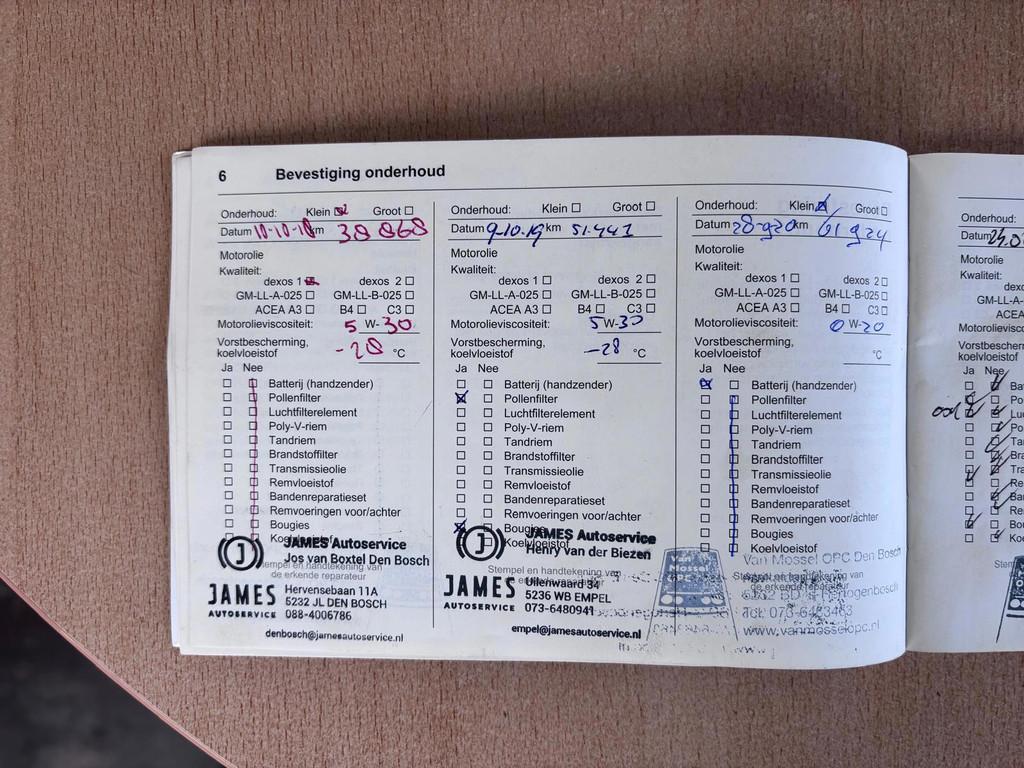 6 Bevestiging onderhoud
Onderhoud: Klein Groot
Datum 10-10-18 km 38868
Motorolie
Kwaliteit:
dexos 1 dexos 2
GM-LL-A-025 GM-LL-B-025
ACEA A3 B4 C3
Motorolieviscositeit: 5 W-30
Vorstbescherming,
koelvloeistof -28 °C
Ja Nee
Batterij (handzender)
Pollenfilter
Luchtfilterelement
Poly-V-riem
Tandriem
Brandstoffilter
Transmissieolie
Remvloeistof
Bandenreparatieset
Remvoeringen voor/achter
Bougies
Koelvloeistof
JAMES Autoservice
Jos van Boxtel Den Bosch
Stempel en handtekening van
de erkende reparateur
JAMES
AUTOSERVICE
Hervensebaan 11A
5232 JL DEN BOSCH
088-4006786
denbosch@jamesautoservice.nl
Onderhoud: Klein Groot
Datum 9-10-19 km 51.441
Motorolie
Kwaliteit:
dexos 1 dexos 2
GM-LL-A-025 GM-LL-B-025
ACEA A3 B4 C3
Motorolieviscositeit: 5 W-30
Vorstbescherming,
koelvloeistof -28 °C
Ja Nee
Batterij (handzender)
Pollenfilter
Luchtfilterelement
Poly-V-riem
Tandriem
Brandstoffilter
Transmissieolie
Remvloeistof
Bandenreparatieset
Remvoeringen voor/achter
Bougies
Koelvloeistof
JAMES Autoservice
Henry van der Biezen
Stempel en handtekening van
JAMES
AUTOSERVICE
Uilenwaard 34
5236 WB EMPEL
073-6480941
empel@jamesautoservice.nl
Onderhoud: Klein Groot
Datum 28-920 km 61924
Motorolie
Kwaliteit:
dexos 1 dexos 2
GM-LL-A-025 GM-LL-B-025
ACEA A3 B4 C3
Motorolieviscositeit: 0 W-20
Vorstbescherming,
koelvloeistof °C
Ja Nee
Batterij (handzender)
Pollenfilter
Luchtfilterelement
Poly-V-riem
Tandriem
Brandstoffilter
Transmissieolie
Remvloeistof
Bandenreparatieset
Remvoeringen voor/achter
Bougies
Koelvloeistof
Van Mossel OPC Den Bosch
Stempel en handtekening van
de erkende reparateur
Van
Mossel
OPC
Tel. 073-6483463
www.vanmosselopc.nl
Onderhoud:
Datum
Motorolie
Kwaliteit:
GM-LL-A
ACEA
Motorolieviscos
Vorstbescherm
koelvloeistof
Ja Nee
ook